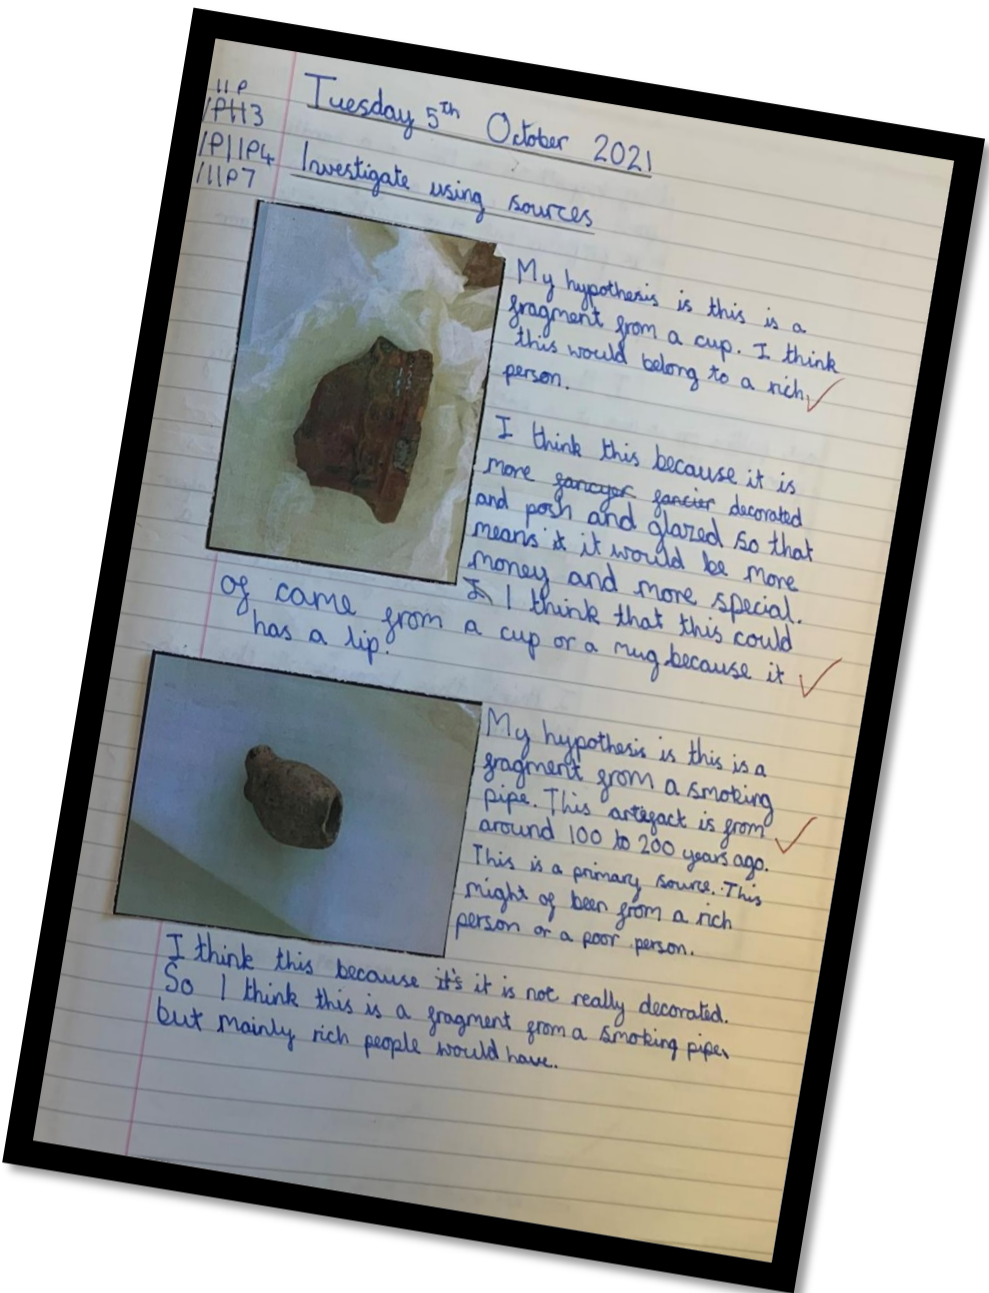 11P
/PH3
/P11P4
/11P7
Tuesday 5th October 2021
Investigate using sources
My hypothesis is this is a
fragment from a cup. I think
this would belong to a rich
person.
I think this because it is
more fancyer fancier decorated
and posh and glazed so that
means it it would be more
money and more special.
I I think that this could
of came from a cup or a mug because it
has a lip.
My hypothesis is this is a
fragment from a smoking
pipe. This artefact is from
around 100 to 200 years ago.
This is a primary source. This
might of been from a rich
person or a poor person.
I think this because it's it is not really decorated.
So I think this is a fragment from a smoking pipe,
but mainly rich people would have.